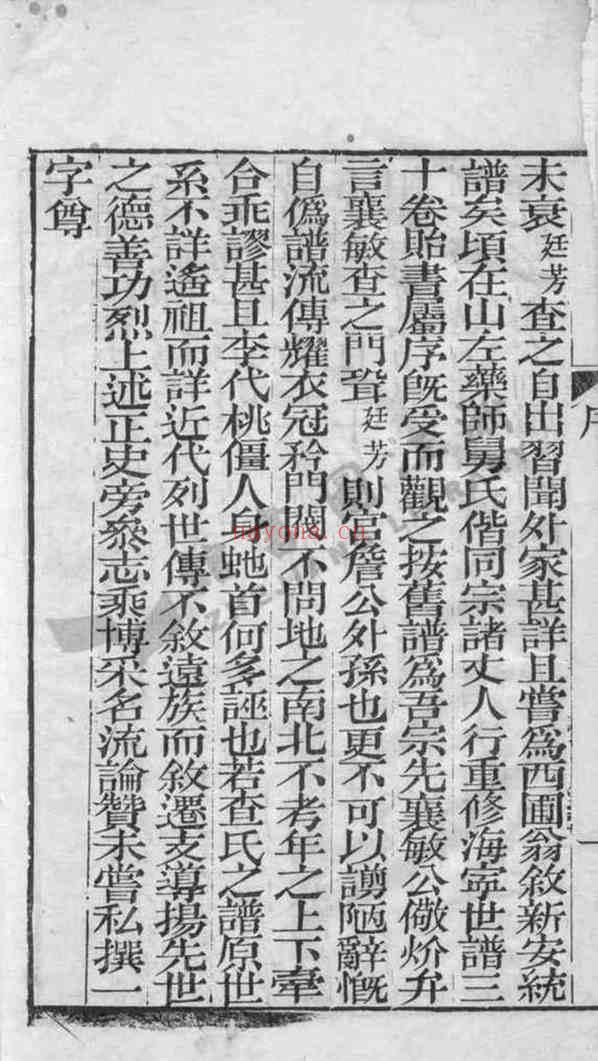 未衰廷芳查之自出習聞外家甚詳且嘗爲西圃翁敘新安統
譜矣頃在山左藥師舅氏偕同宗諸丈人行重修海寧世譜三
十卷貽書屬序旣受而觀之按舊譜爲吾宗先襄敏公儆炌弁
言襄敏查之門壻廷芳則宮詹公外孫也更不可以謭陋辭慨
自僞譜流傳耀衣冠矜門閥不問地之南北不考年之上下牽
合乖謬甚且李代桃僵人身虵首何多誣也若查氏之譜原世
系不詳遙祖而詳近代列世傳不敘遠族而敘遷支導揚先世
之德善功烈上述正史旁叅志乘博采名流論贊未嘗私撰一
字尊
序
一
nayona.cn